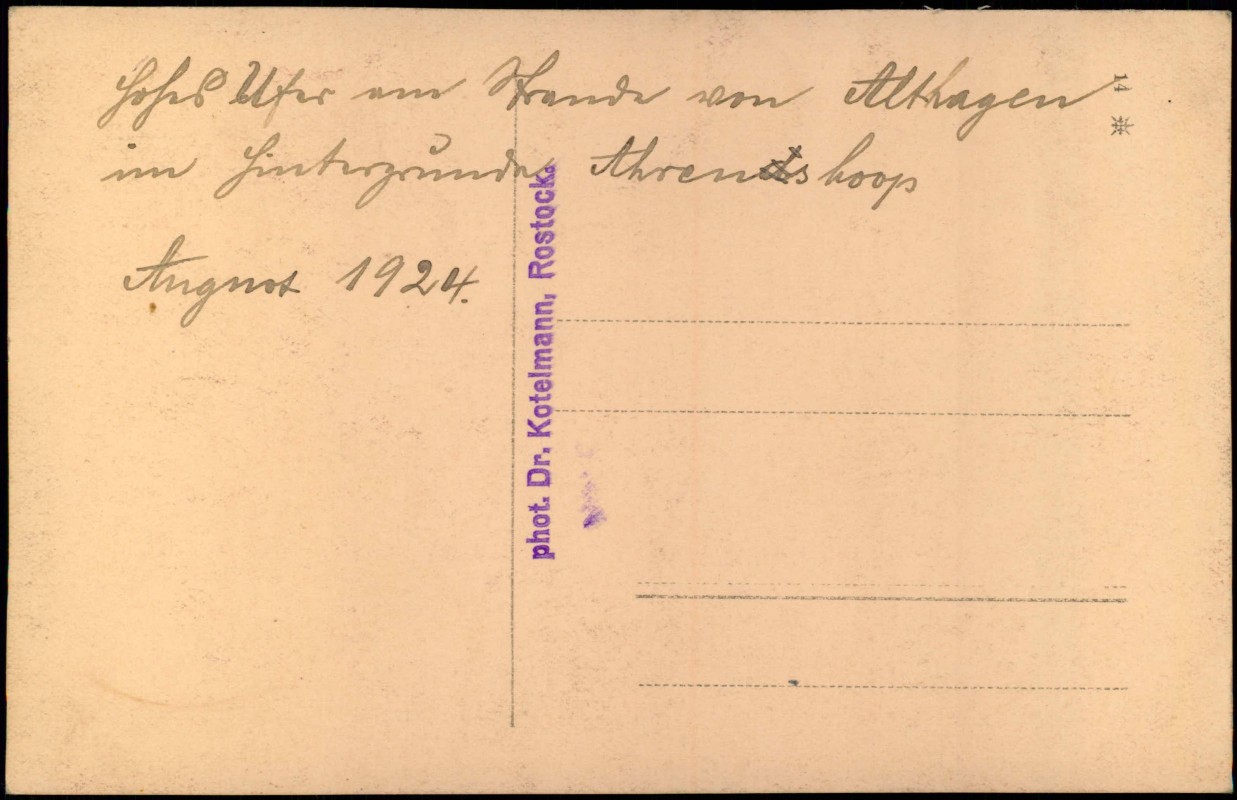 Hohes Ufer am Strande von Althagen
im Hintergrunde Ahrenshoop
August 1924.
phot. Dr. Kotelmann, Rostock.
14